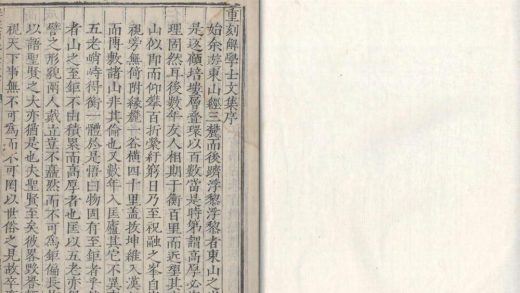 重刻解學士文集序
始余遊東山經三麓而後躋浮黎浮黎者東山之
是返顧培塿層疊環以百數當是時第謂高厚必
理固然耳後數年友人相期于衡百里而近望其
山似即而仰攀百折縈紆窮日乃至祝融之峯自
視旁無倚附緣麓一谷橫四十里蓋拔坤維入漢
而傳數諸山非其倫也又數年入匡廬其它不異
五老峭峙得衡一體於是悟曰物固有至鉅者乎
者山之至鉅不由積累而高厚者也匡以五老亦
譬之形貌兩人戴立豈不矗然而不可為鉅偏長
以語聖賢之大亦猶是也夫聖賢至矣彼畧毀譽
視天下事無不可為而不可罔以世俗之見故卒